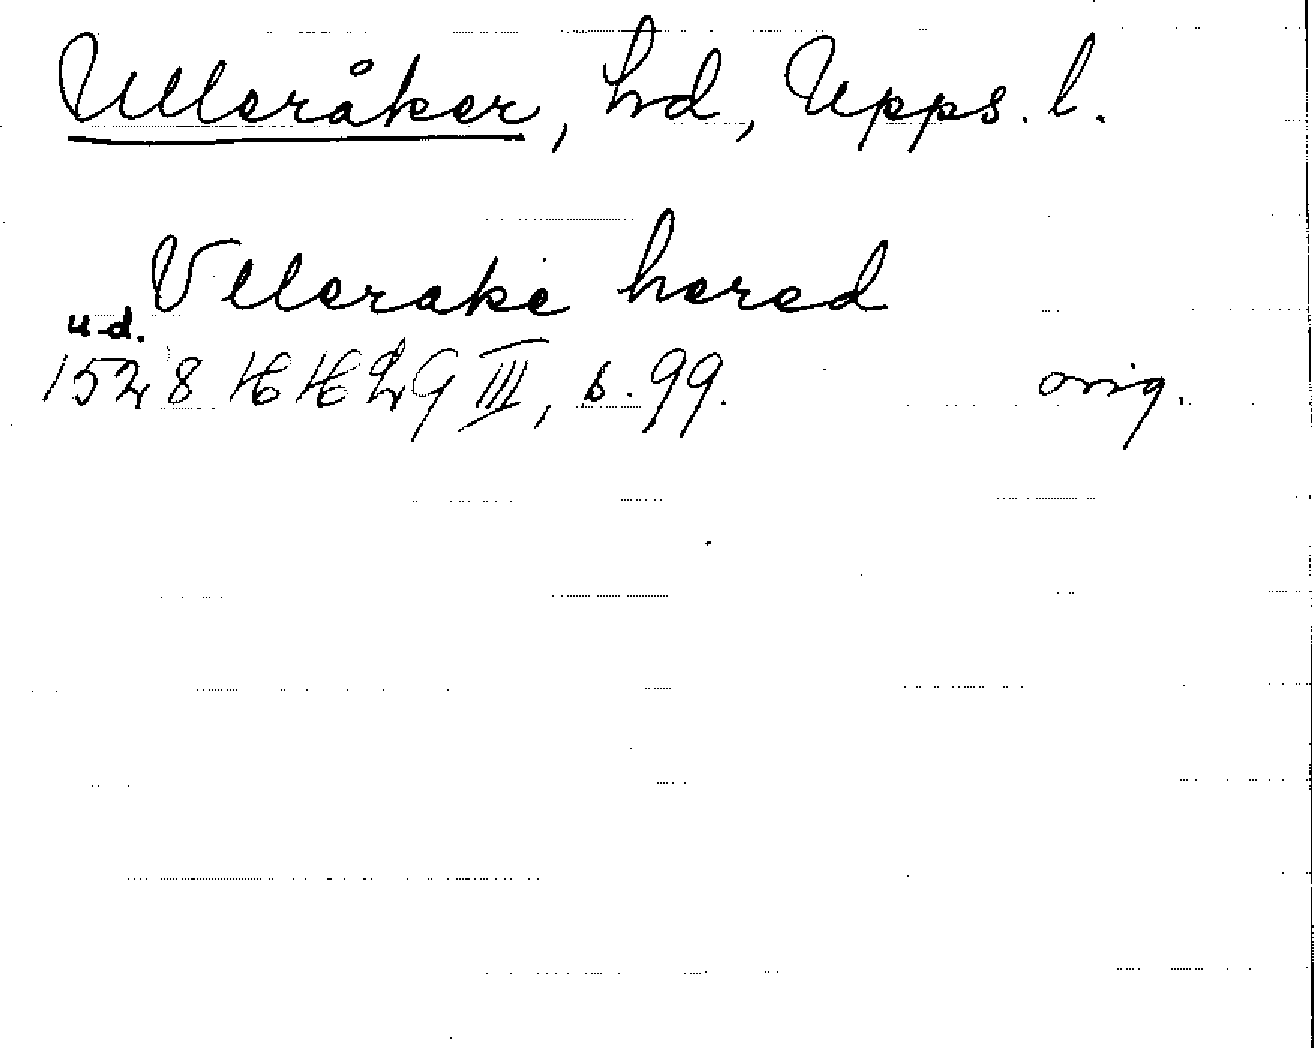 Ulleråker, hd, Upps. l.
Vllerake hered
u.d.
1528 HH Lg III, s. 99. orig.